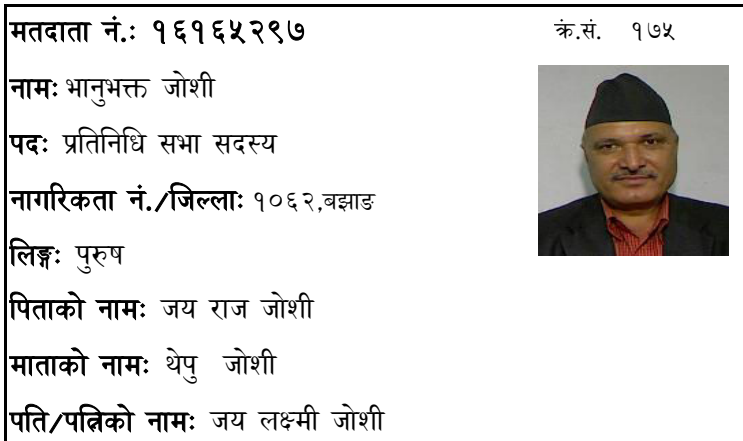 मतदाता नं.: १६१६५२९७ क्रं.सं. १७५
नामः भानुभक्त जोशी
पदः प्रतिनिधि सभा सदस्य
नागरिकता नं./जिल्लाः १०६२,बझाङ
लिङ्गः पुरुष
पिताको नामः जय राज जोशी
माताको नामः थेपु जोशी
पति/पत्निको नामः जय लक्ष्मी जोशी